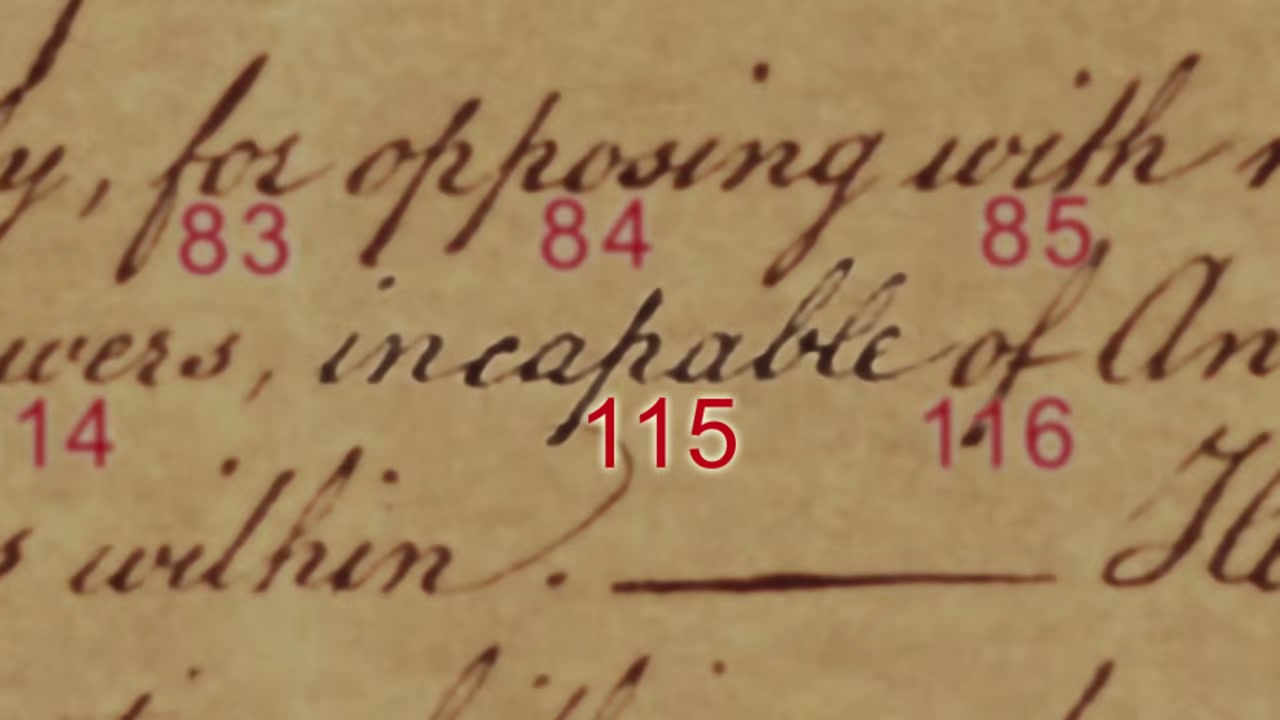 y, for opposing with
83 84 85
wers, incapable of An
14 115 116
s within. He